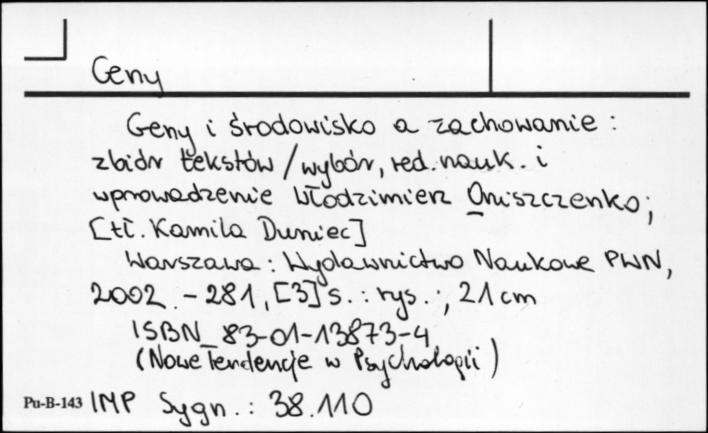 Geny
Geny i środowisko a zachowanie :
zbiór tekstów / wybór, red. nauk. i
wprowadzenie Włodzimierz Oniszczenko ;
[tł. Kamila Duniec]
Warszawa : Wydawnictwo Naukowe PWN,
2002. - 281, [3] s. : rys. ; 21 cm
ISBN 83-01-13873-4
(Nowe Tendencje w Psychologii)
Pu-B-143 INP Sygn. : 38.110